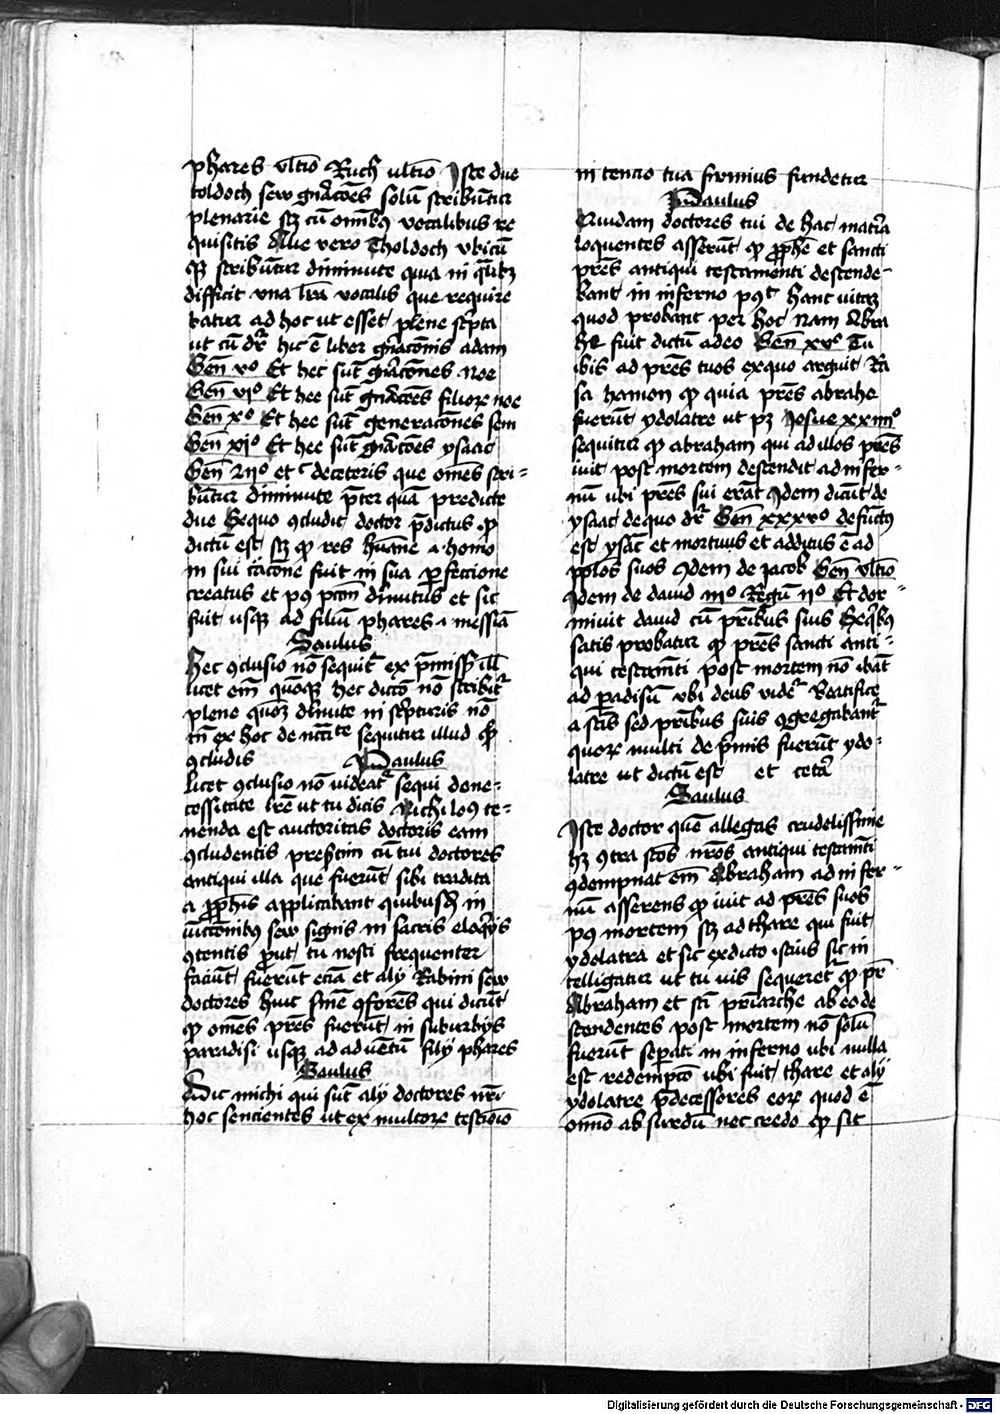 phares vltīo Ruth ultīo Iste due
toldoch sew gn̄acōes solū scribūtur
plenarie sʒ cū om̄ibꝯ vocalibus re
quisitis Alie vero Tholdoch vbicū
qʒ scribūtur diminute quia in q̄libʒ
difficit una lr̄a vocalis que require
batur ad hoc ut esset plene sc̄pta
ut cū dr̄ hic ē liber gn̄acōnis adam
Gen̄ vº Et hec sūt gn̄acōnes Noe
Gen̄ vjº Et hee sūt gn̄acōēs filioꝝ noe
Gen̄ xº Et hee sūt generacōnes sem
Gen̄ xjº Et hee sūt gn̄acōēs ysaac
Gen̄ et de ceteris que om̄es scri-
būtur diminute p̄ter quā predicte
due Ex quo ꝯcludit doctor p̄dictus ꝙ
dictū est sʒ ꝙ res hūane .i. homo
in sui c̄acōne fuit in sua ꝑfeccione
creatus et pꝰ pctm̄ diminutus et sic
fuit usqʒ ad filiū phares .i. messiā
Saulus
Hec ꝯclusio nō sequit᷑ ex p̄miss̄ ill̄
licet em̄ quōqʒ hec dictō nō scribit᷑
plene quōqʒ dīnute in sc̄pturis nō
tn̄ ex hoc de nc̄cite sequitur illud ꝙ
ꝯcludis Paulus
licet ꝯclusio nō videat᷑ sequi de ne-
cessitate lr̄e ut tu dicis Michi loꝯ te-
nenda est auctoritas doctoris eam
ꝯcludentis presertim cū tui doctores
antiqui illa que fuerūt sibi tradita
a ꝓph̄is applicabant quibusdā in
iūctionibꝯ sew signis in sacris eloq̄ijs
ꝯtentis prout tu nosti frequenter
faciūt fuerūt eciā et alij Rabini sew
doctores huic sn̄ie ꝯformes qui dicūt
ꝙ om̄es prēs fuerūt in suburbijs
paradisi usqʒ ad aduentū filij phares
Saulus
Dic michi qui sūt alij doctores nr̄i
hoc sencientes ut ex multoꝝ testīōio
in tencio tua firmius fundetur
Paulus
Quidam doctores tui de hac mat̄ia
loquentes asserūt ꝙ ꝓphe et sancti
prēs antiqui testamenti descende-
bant in inferno post hanc vitaʒ
quod probant per hoc Nam Abra
he fuit dictū a deo Gen̄ xvº Tu
ibis ad prēs tuos ex quo arguit Ra
sa hamon ꝙ quia prēs abrahe
fuerūt ydolatre ut pʒ Josue xxiiiiº
sequitur ꝙ abraham qui ad illos prēs
iuit post mortem descendit ad infer-
nū ubi prēs sui erāt Idem dicūt de
ysaac de quo dr̄ Gen̄ xxxvº defūctꝯ
est ysāc et mortuus et additus ē ad
pplos suos Idem de Jacob Gen̄ vltīo
Idem de dauid iiiº Regū iiº Et dor-
miuit dauid cū pr̄ibus suis Ex q̄ibꝯ
satis probatur ꝙ prēs sancti anti-
qui testam̄ti post mortem nō ibāt
ad paradisū vbi deus videt᷑ beatifice
a sc̄is sed pr̄ibus suis ꝯgregabant᷑
quoꝝ multi de p̄mis fuerūt ydo-
latre ut dictū est et ceta᷑
Saulus
Iste doctor quē allegas crudelissime
hʒ ꝯtra sc̄os nr̄os antiqui testam̄ti
ꝯdempnat em̄ Abraham ad infer-
nū asserens ꝙ iuit ad prēs suos
pꝰ mortem sʒ ad thare qui fuit
ydolatra et sic ex dicto istius sic in
telligatur ut tu vis sequeret᷑ ꝙ pr̄
Abraham et sc̄i pr̄iarche ab eo de
scendentes post mortem nō solū
fuerūt seperati in inferno ubi nulla
est redempcō ubi fuit thare et alij
ydolatre p̄decessores eoꝝ quod ē
om̄īo absurdū nec credo ꝙ sit
Digitalisierung gefördert durch die Deutsche Forschungsgemeinschaft - DFG